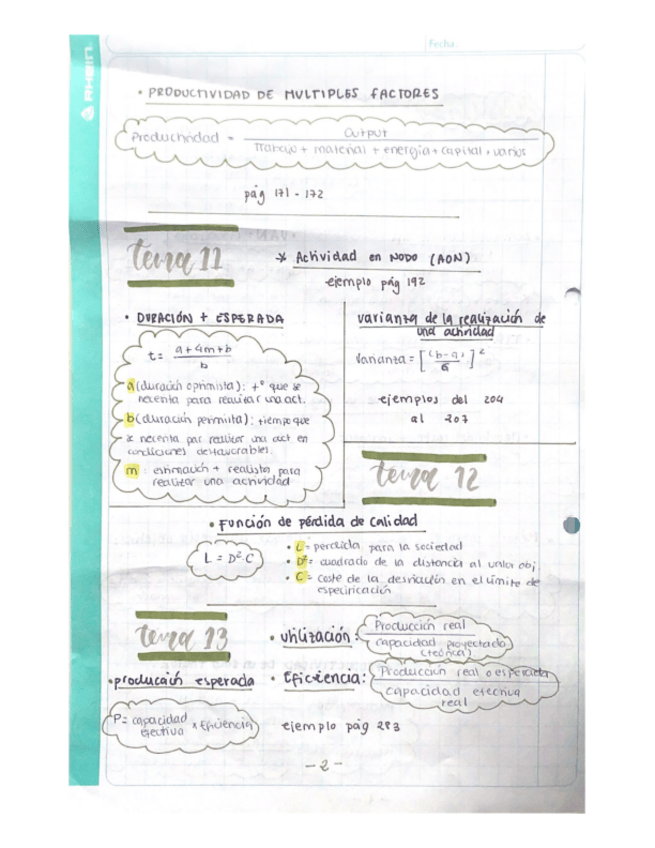 RHEIN
Fecha:
• PRODUCTIVIDAD DE MULTIPLES FACTORES
Productividad = Output
Trabajo + material + energía + capital + varios
pág 171 - 172
tema 11
* Actividad en NODO (AON)
ejemplo pág 192
• DURACIÓN + ESPERADA
t = a + 4m + b
b
a (duración optimista): tº que se
necesita para realizar una act.
b (duración pesimista): tiempo que
se necesita par realizar una act en
condiciones desfavorables.
m: estimación + realista para
realizar una actividad
varianza de la realización de
una actividad
Varianza = [(b-a) / 6]²
ejemplos del 204
al 207
tema 12
• Función de pérdida de calidad
L = D² · C
• L = perdida para la sociedad
• D² = cuadrado de la distancia al valor obj
• C = coste de la desviación en el límite de
especificación
tema 13
• Utilización: Producción real
capacidad proyectada
(teórica)
• producción esperada
P = capacidad efectiva x Eficiencia
• Eficiencia: Producción real o esperada
capacidad efectiva
real
ejemplo pág 283
- 2 -